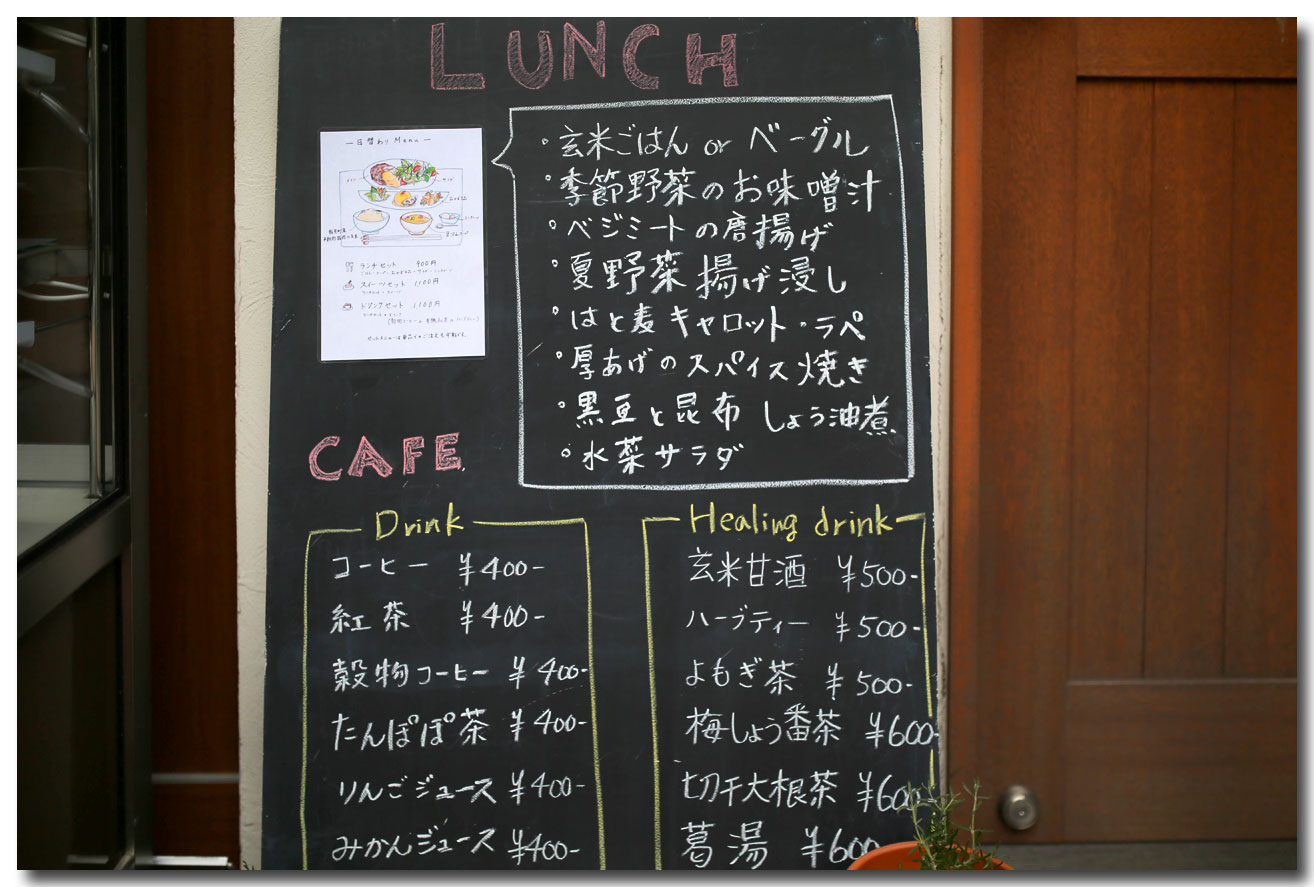 LUNCH
—日替わり Menu—
ランチセット 900円
スイーツセット 1100円
ドリンクセット 1100円
・玄米ごはん or ベーグル
・季節野菜のお味噌汁
・ベジミートの唐揚げ
・夏野菜揚げ浸し
・はと麦キャロット・ラペ
・厚あげのスパイス焼き
・黒豆と昆布 しょう油煮
・水菜サラダ
CAFE
Drink
コーヒー ¥400-
紅茶 ¥400-
穀物コーヒー ¥400-
たんぽぽ茶 ¥400-
りんごジュース ¥400-
みかんジュース ¥400-
Healing drink
玄米甘酒 ¥500-
ハーブティー ¥500-
よもぎ茶 ¥500-
梅しょう番茶 ¥600-
切干大根茶 ¥600-
葛湯 ¥600